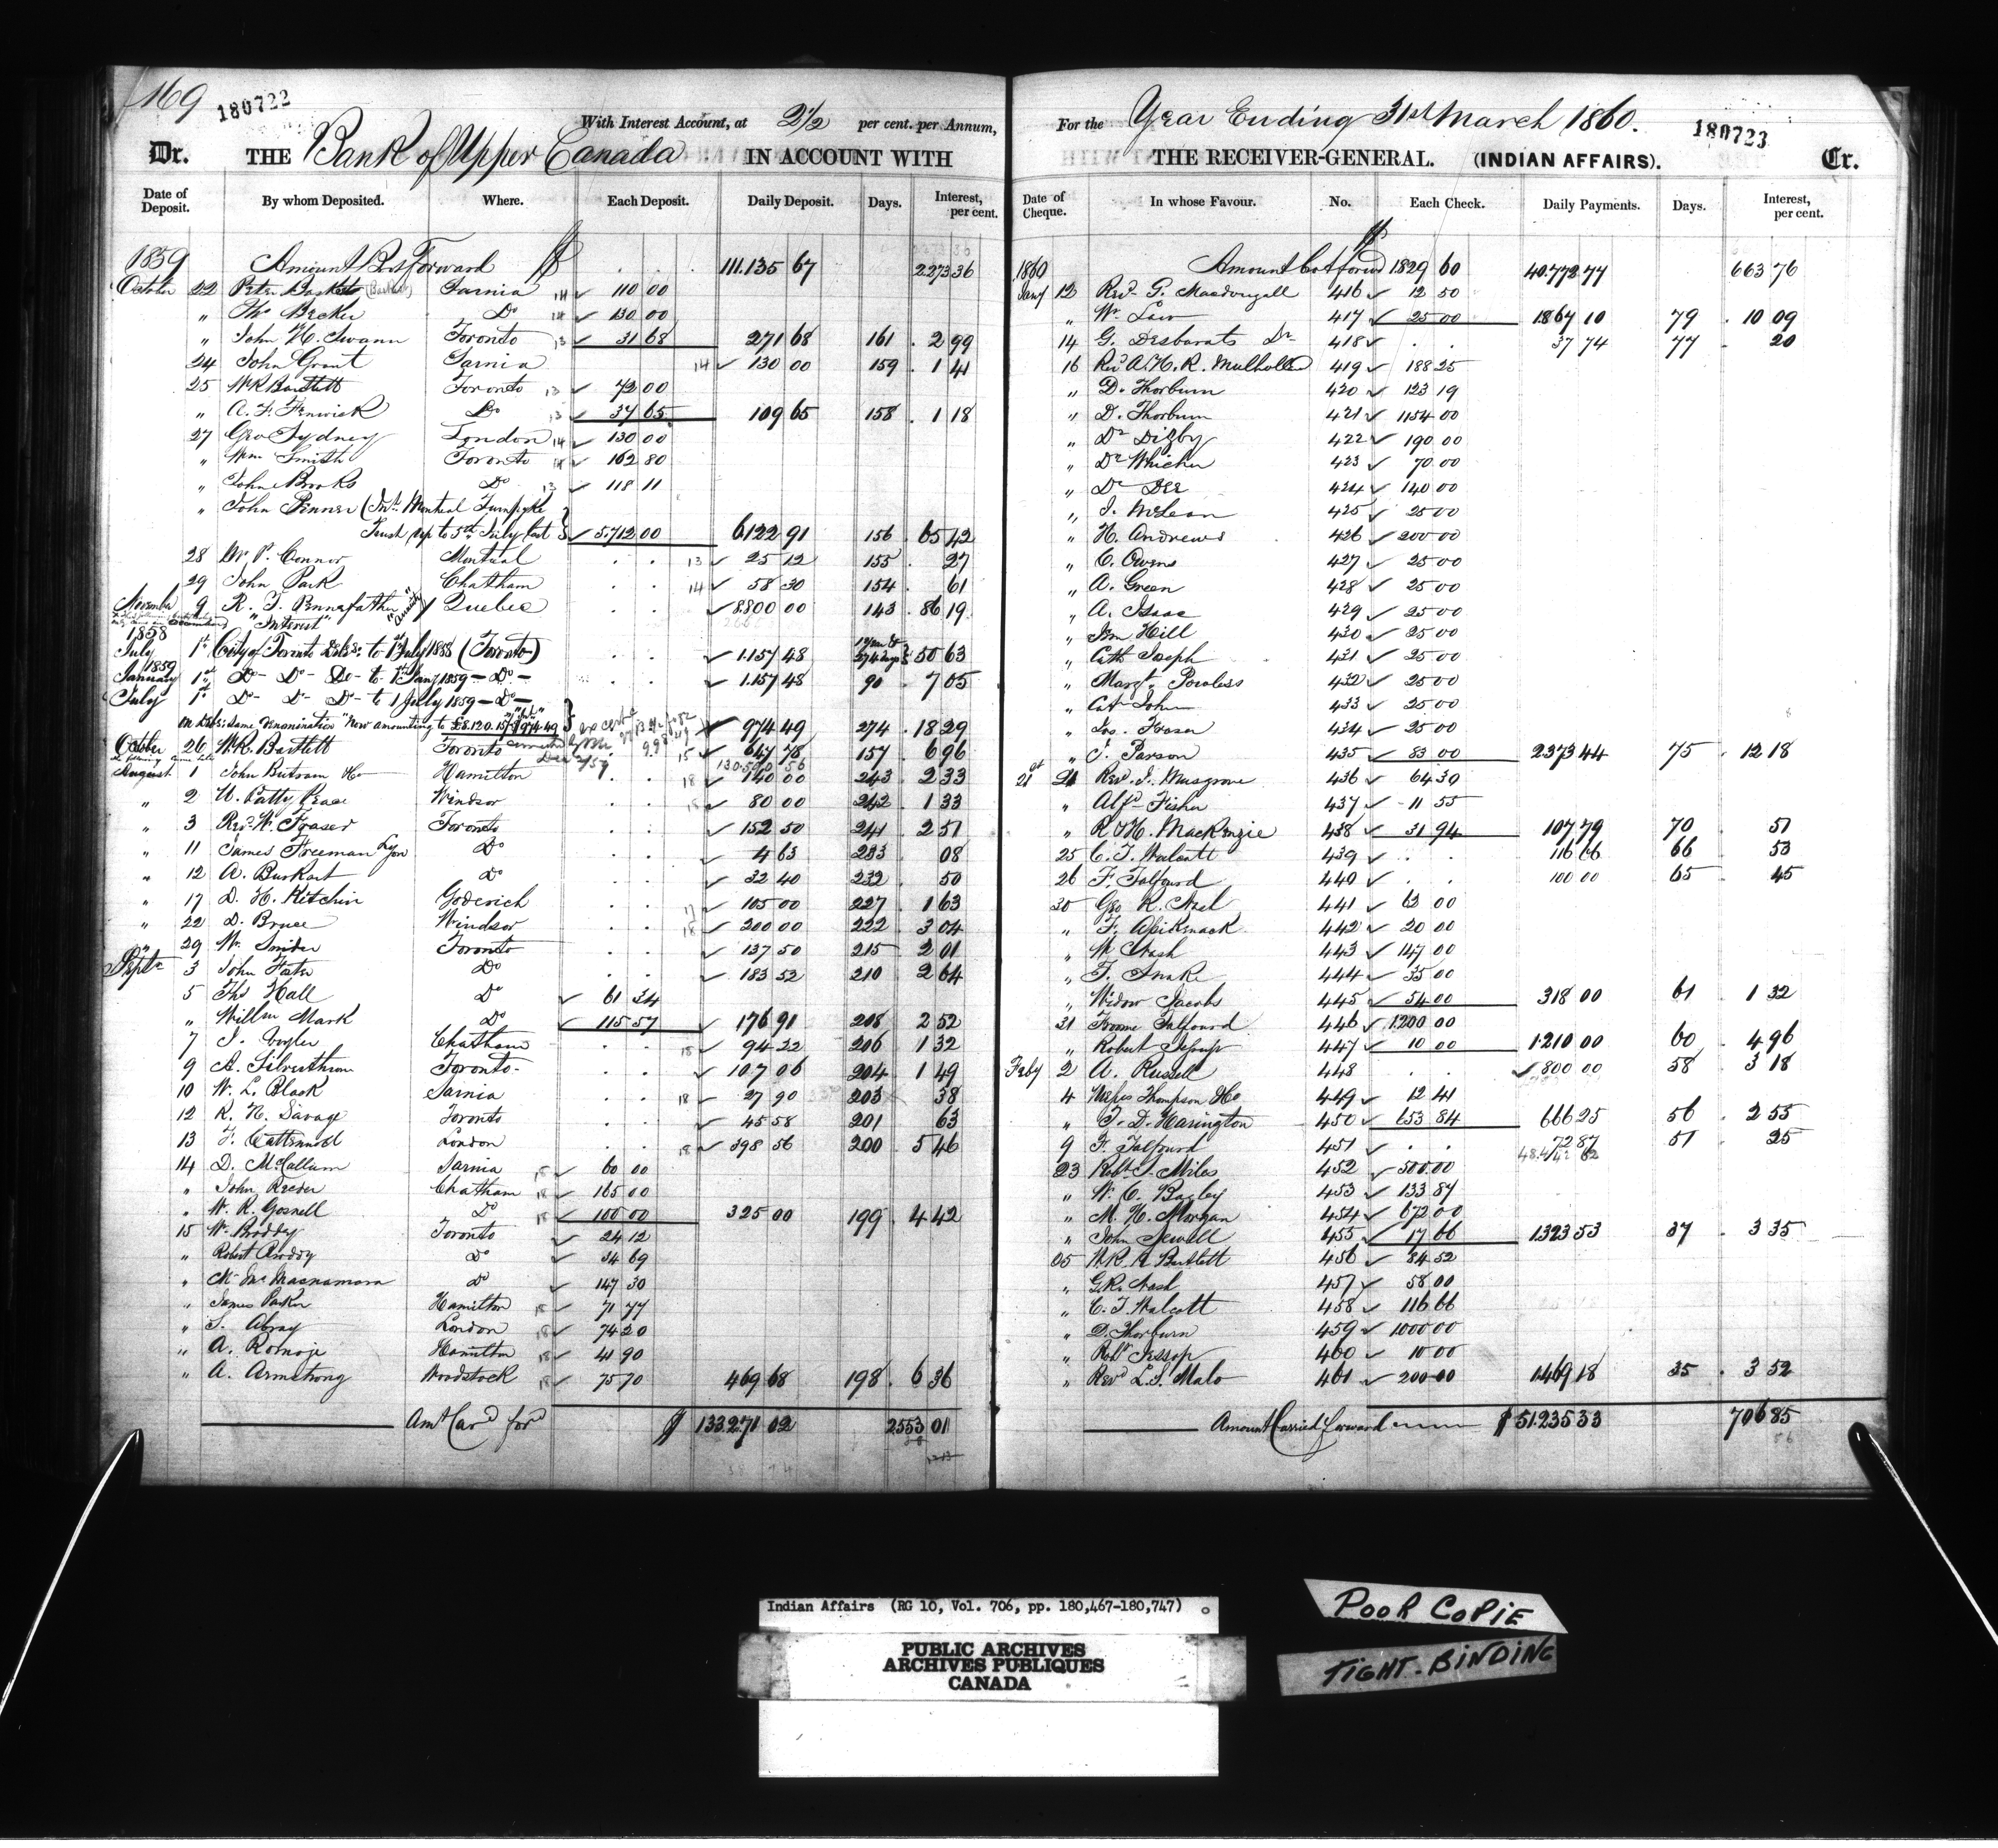 169
180722
With Interest Account, at 2½ per cent. per Annum,
Dr. THE Bank of Upper Canada IN ACCOUNT WITH
Date of Deposit. By whom Deposited. Where. Each Deposit. Daily Deposit. Days. Interest, per cent.
1859 Amount Bot Forward $ . . 111.135 67 2273 36
October 22 Sarnia 14 ✓ 110 00
" Thos Becker Do 14 ✓ 130 00
" John H. Swann Toronto 13 ✓ 31 68 271 68 161 . 2 99
24 John Grant Sarnia 14 ✓ 130 00 159 . 1 41
25 W R Bartlett Toronto 13 ✓ 72 00
" A. F. Fenwick Do 13 ✓ 37 65 109 65 158 . 1 18
27 Geo Sydney London 14 ✓ 130 00
" Wm Smith Toronto 14 ✓ 162 80
" John Brooks Do 13 ✓ 118 11
" John Penner (Int. Montreal Turnpike
Trust, up to 5th July last } ✓ 5.712 00 6122 91 156 . 65 42
28 Connor Montreal . . 13 ✓ 25 12 155 . 27
29 John Park Chatham . . 14 ✓ 58 30 154 . 61
November 9 R. T. Pennefather Quebec . . ✓ 8800 00 143 . 86 19
"Interest"
1858
July 1st City of Toronto Debs: to 1st July 1858 (Toronto) . . ✓ 1.157 48 274 days } 50 63
1859
January 1st Do - Do - Do - to 1st Jany 1859 - Do - . . ✓ 1.157 48 90 . 7 05
July 1st Do - Do - Do - to 1 July 1859 - Do -
on Debs: same denomination "Now amounting to £8.120.15/ ✓ 974 49 274 . 18 29
October 26 W.R. Bartlett Toronto 15 ✓ 647 78 157 . 6 96
August 1 Hamilton . . 18 ✓ 140 00 243 . 2 33
" 2 Windsor . . 18 ✓ 80 00 242 . 1 33
" 3 Revd W. Fraser Toronto . . ✓ 152 50 241 . 2 51
" 11 James Freeman Do . . ✓ 4 63 233 . 08
" 12 A. Burkart Do . . ✓ 32 40 232 . 50
" 17 D. H. Ritchin Goderich . . 17 ✓ 105 00 227 . 1 63
" 22 D. Bruce Windsor . . 18 ✓ 200 00 222 . 3 04
" 29 W. Snider Toronto . . ✓ 137 50 215 . 2 01
Septr 3 John Foster Do . . ✓ 183 52 210 . 2 64
5 Thos Hall Do ✓ 61 34
" Willm Mark Do ✓ 115 57 ✓ 176 91 208 . 2 52
7 Chatham . . 18 ✓ 94 22 206 . 1 32
9 A. Silverthorn Toronto . . ✓ 107 06 204 . 1 49
10 W. L. Black Sarnia . . 18 ✓ 27 90 203 38
12 R. H. Savage Toronto . . ✓ 45 58 201 63
13 London . . 18 ✓ 398 56 200 . 5 46
14 D. McCallum Sarnia 18 ✓ 60 00
" John Reeder Chatham 18 ✓ 165 00
" W. R. Gosnell Do 18 ✓ 100 00 325 00 199 . 4 42
15 W. Broddy Toronto ✓ 24 12
" Robert Broddy Do ✓ 34 69
" Macnamara Do ✓ 147 30
" James Parker Hamilton 18 ✓ 71 77
" S. Abray London 18 ✓ 74 20
" A. Hamilton 18 ✓ 41 90
" A. Armstrong Woodstock 18 ✓ 75 70 469 68 198 . 6 36
Amt Card ford $ 133.271 02 2553 01
For the Year Ending 31st March 1860.
180723
THE RECEIVER-GENERAL. (INDIAN AFFAIRS). Cr.
Date of Cheque. In whose Favour. No. Each Check. Daily Payments. Days. Interest, per cent.
1860 Amount bot forwd $ 1829 60 40.772 77 663 76
Jany 12 Revd G. Macdougall 416 ✓ 12 50
" Wm Law 417 ✓ 25 00 1867 10 79 . 10 09
14 G. Desbarats 418 ✓ . . 37 74 77 . 20
16 Revd A. H. R. Mulholland 419 ✓ 188 25
" D. Thorburn 420 ✓ 123 19
" D. Thorburn 421 ✓ 1154 00
" Dr Digby 422 ✓ 190 00
" Dr Whicher 423 ✓ 70 00
" Dr Dee 424 ✓ 140 00
" J. McLean 425 ✓ 25 00
" H. Andrews 426 ✓ 200 00
" C. Owens 427 ✓ 25 00
" A. Green 428 ✓ 25 00
" A. Isaac 429 ✓ 25 00
" Hill 430 ✓ 25 00
" Cath Joseph 431 ✓ 25 00
" Margt. Powless 432 ✓ 25 00
" Cath John 433 ✓ 25 00
" Jos. Fraser 434 ✓ 25 00
" J. Parson 435 ✓ 83 00 2373 44 75 . 12 18
21 Revd J. Musgrove 436 ✓ 64 30
" Alfd Fisher 437 ✓ 11 55
" R & H. MacKenzie 438 ✓ 31 94 107 79 70 . 51
25 C. T. Walcott 439 ✓ . . 116 66 66 . 53
26 F. Talfourd 440 ✓ . . 100 00 65 . 45
30 Geo K. 441 ✓ 62 00
" F. 442 ✓ 20 00
" W. Wash 443 ✓ 147 00
" F. Snake 444 ✓ 35 00
" Widow Jacobs 445 ✓ 54 00 318 00 61 . 1 32
31 Froome Talfourd 446 ✓ 1200 00
" Robert Jessup 447 ✓ 10 00 1.210 00 60 . 4 96
Feby 2 A. Russell 448 . . ✓ 800 00 58 . 3 18
4 Thompson 449 ✓ 12 41
" T. D. Harington 450 ✓ 653 84 666 25 56 . 2 55
9 F. Talfourd 451 ✓ . . 72 87 51 . 25
23 Robt S. Miles 452 ✓ 500 00
" W. C. Bagley 453 ✓ 133 87
" M. H. Morgan 454 ✓ 672 00
" John Jewell 455 ✓ 17 66 1323 53 37 . 3 35
25 W. R. Bartlett 456 ✓ 84 52
" 457 ✓ 58 00
" C. T. Walcott 458 ✓ 116 66
" D. Thorburn 459 ✓ 1000 00
" Robt Jessop 460 ✓ 10 00
" Revd L. S. Malo 461 ✓ 200 00 1.469 18 35 . 3 52
Amount Carried forward $ 51.235 33 706 85
Indian Affairs (RG 10, Vol. 706, pp. 180,467-180,747)
PUBLIC ARCHIVES
ARCHIVES PUBLIQUES
CANADA
POOR COPIE
TIGHT-BINDING